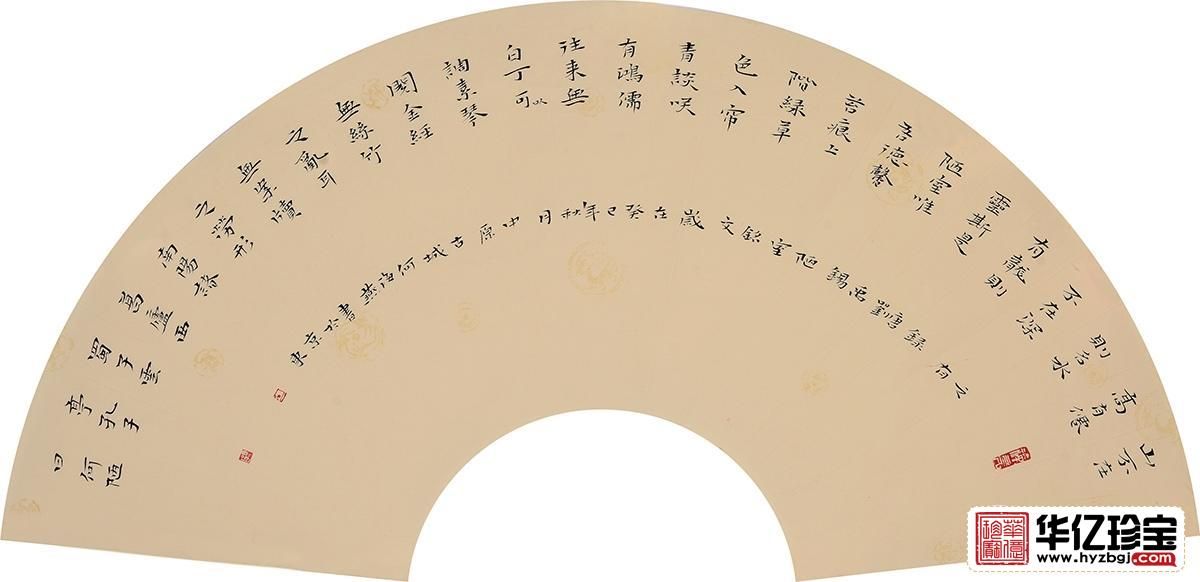 山不在
高有僊
則名水
不在深
有龍則
靈斯是
陋室唯
吾德馨
苔痕上
階緑草
色入帘
青談咲
有鴻儒
往来無
白丁可以
調素琴
閱金經
無絲竹
之亂耳
無案牘
之勞形
南陽諸
葛廬西
蜀子雲
亭孔子
曰何陋
之有
録唐劉禹錫陋室銘文歲在癸巳年秋月中原古城何海燕書於東京
华亿珍宝
www.hyzbgj.com